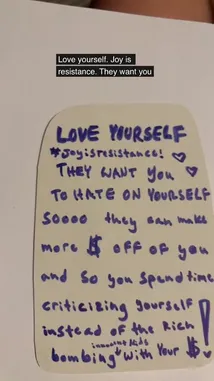 Love yourself. Joy is
resistance. They want you
LOVE YOURSELF
#Joyisresistance! ♡
THEY WANT YOU ♡
TO HATE ON YOURSELF
SOOOO they can make
more $ off of you
and so you spend time
criticizing yourself
instead of the Rich
innocent kids
bombing ↓ with your $!